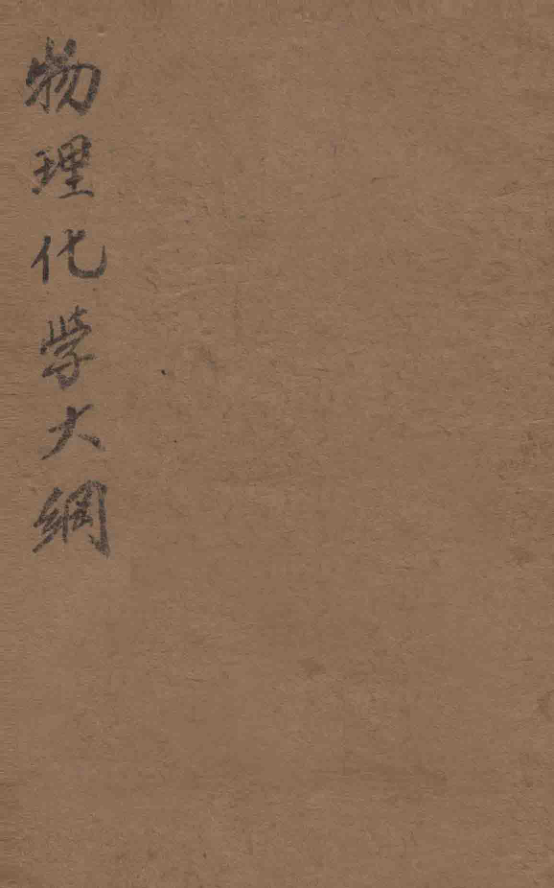 物理化学大綱